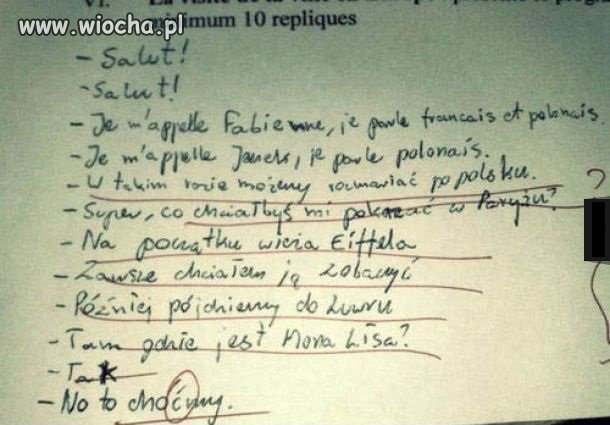 www.wiocha.pl
VI. La visite de la
minimum 10 repliques
- Salut!
- Salut!
- Je m'appelle Fabienne, je parle francais et polonais.
- Je m'appelle Janek, je parle polonais.
- W takim razie możemy rozmawiać po polsku.
- Super, co chciałbyś mi pokazać w Paryżu?
- Na początku wieża Eiffela
- Zawsze chciałem ją zobaczyć
- Później pójdziemy do Luwru
- Tam gdzie jest Mona Lisa?
- Tak
- No to choćmy.
?